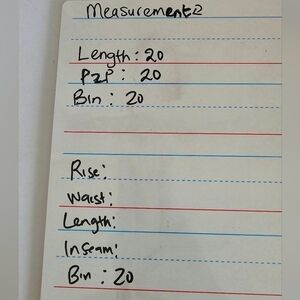 Measurement2
Length: 20
P2P: 20
Bin: 20
Rise:
Waist:
Length:
Inseam:
Bin: 20